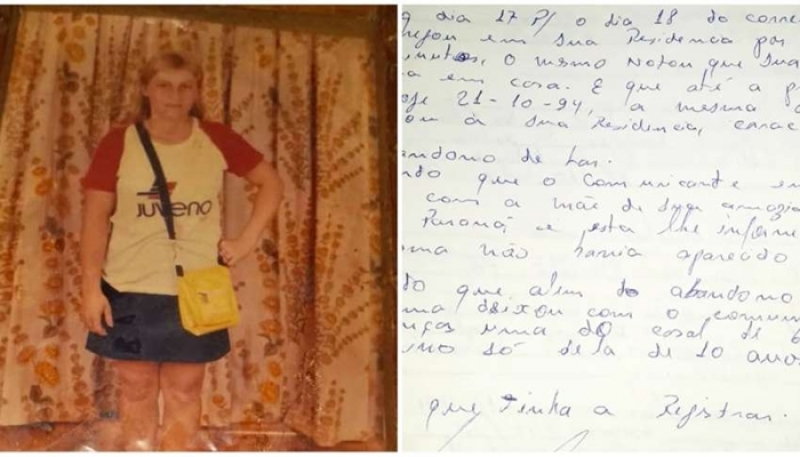 JUVENO
q dia 17 P/ o dia 18 do corre
em sua Residencia por
minutos, o mesmo Notou que sua
a em casa. E que até a p
21-10-94, a mesma
ou a sua Residencia, carac
andono de Lar.
ndo que o Comunicante e
com a mãe de sua amasia
Paraná e esta lhe inform
ma não havia aparecido
do que alem do abandono
ma deixou com o comun
nças uma do casal de 6
só dela de 10 anos
que tinha a Registrar.